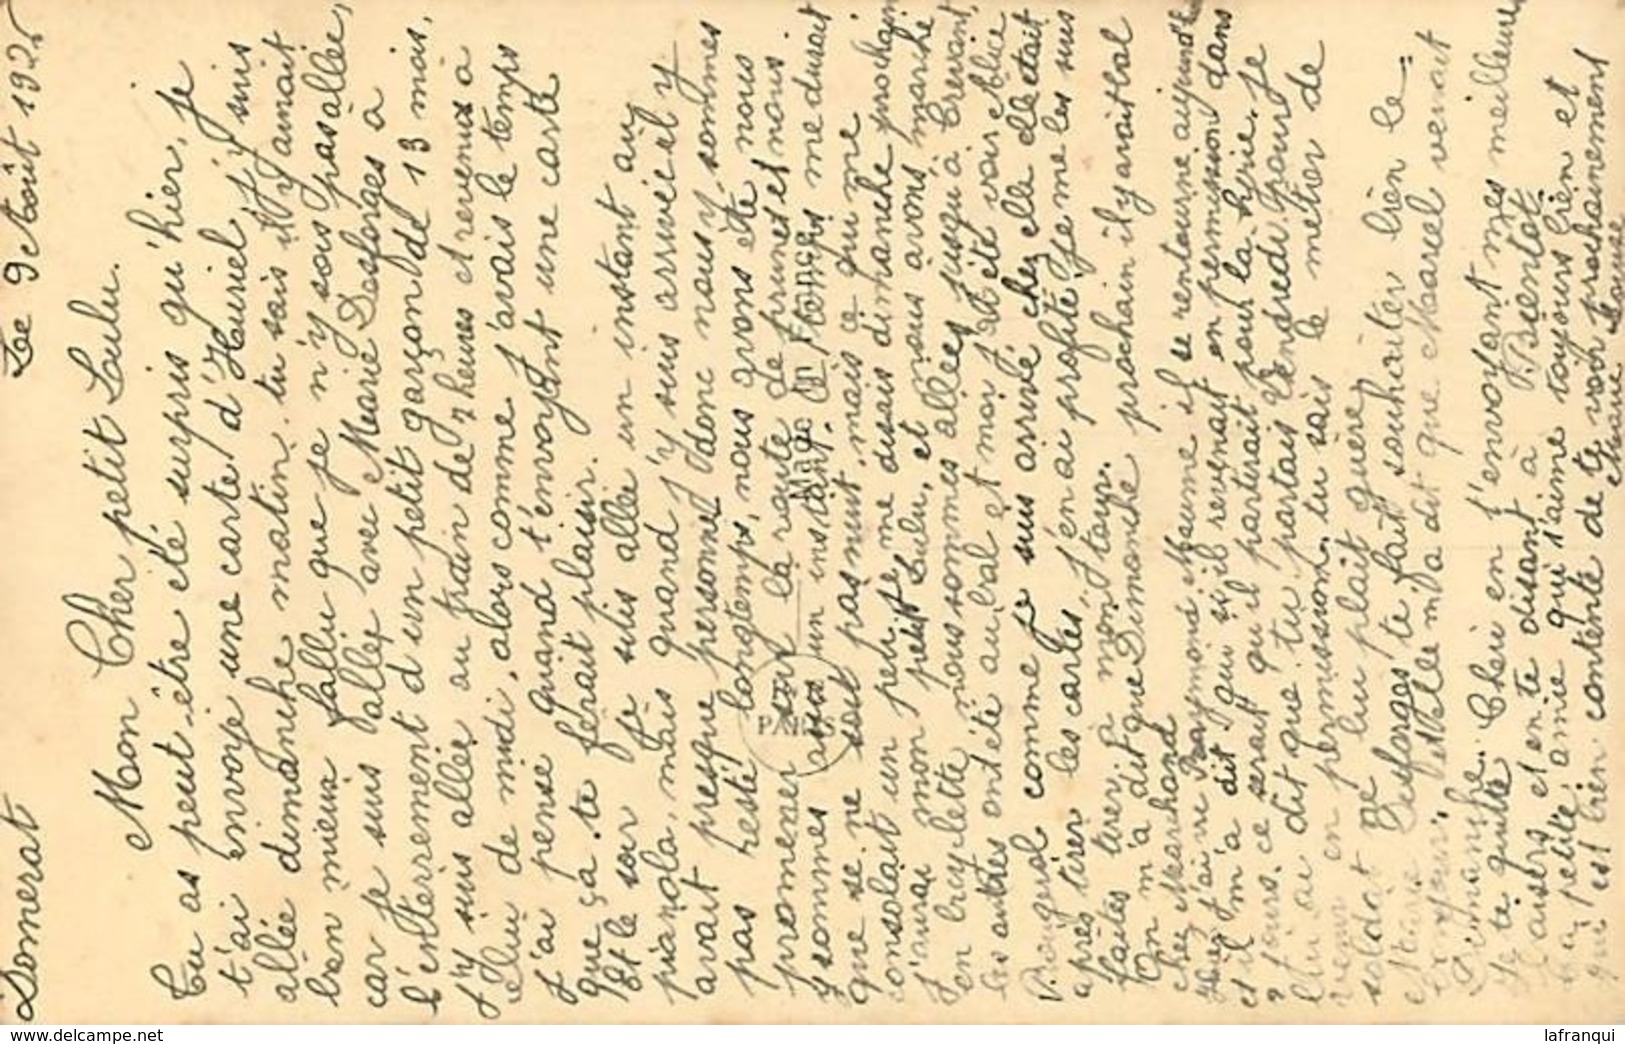 Domérat Le 9 Août 1925
Mon Cher petit Lulu.
Tu as peut-être été surpris qu'hier, je
t'ai envoyé une carte d'Huriel, j'y suis
allée dimanche matin. tu sais il y aurait
ban mieux fallu que je n'y sois pas allée,
car je suis allée avec Marie Desforges à
l'enterrement d'un petit garçon de 13 mois.
J'y suis allée au train de 7 heures et revenue à
celui de midi, alors comme j'avais le temps
J'ai pensé quand t'envoyant une carte
que ça te ferait plaisir.
Et le soir je suis allée un instant au
pianola, mais quand j'y suis arrivée il y
avait presque personne donc nous y sommes
pas resté longtemps, nous avons été nous
promener sur la route de prunet et nous
y sommes assis un instant. le temps me durait
que se ne soit pas nuit, mais ce qui me
consolait un peu je me disais dimanche prochain
J'aurai mon petit Lulu, et nous avons marché
en bicyclette nous sommes allées jusqu'à Crevant,
les autres ont été au bal et moi j'ai été voir Alice
Rouquet comme je suis arrivé chez elle elle était
après tirer les cartes, j'en ai profité je me les suis
faites tirer, à mon tour.
On m'a dit que Dimanche prochain il y avait bal
chez Marchand
Hier j'ai vu Raymond Maume il se retourne aujourd'hui
et il m'a dit qui s'il revenait en permission dans
7 jours, ce serait qu'il partirait pour la Syrie, je
lui ai dit que tu partais Vendredi pour
venir en permission, tu sais le métier de
soldat ne lui plait guère
Marie Desforges te fait souhaiter bien le
bonjour. Melle m'a dit que Marcel venait
Dimanche.
Je te quitte Chéri en t'envoyant mes meilleurs
baisers et en te disant à Bientôt
ta petite amie qui t'aime toujours bien et
qui est bien contente de te voir prochainement
PARIS
Mage de France
lafranqui
www.delcampe.net